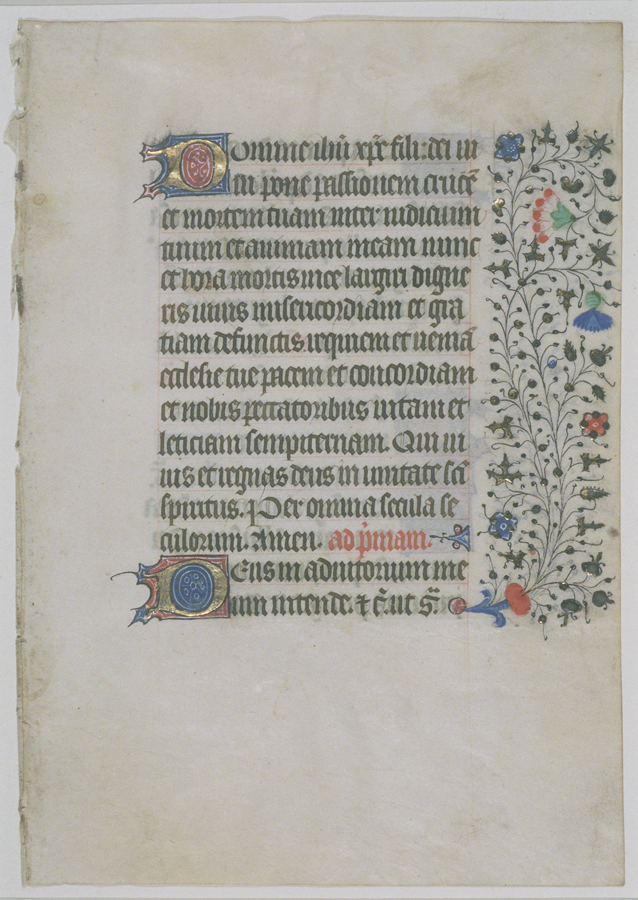 Domine ihu xpe fili dei ui
ui pone passionem crucē
et mortem tuam inter iudicium
tuum et animam meam nunc
et hora mortis mee largiri digne
ris uiuis misericordiam et gra
tiam defunctis requiem et ueniā
ecclesie tue pacem et concordiam
et nobis peccatoribus uitam et
leticiam sempiternam. Qui ui
uis et regnas deus in unitate sci
spiritus. Per omnia secula se
culorum. Amen. ad primam.
Deus in adiutorium me
um intende. et c. ut s.